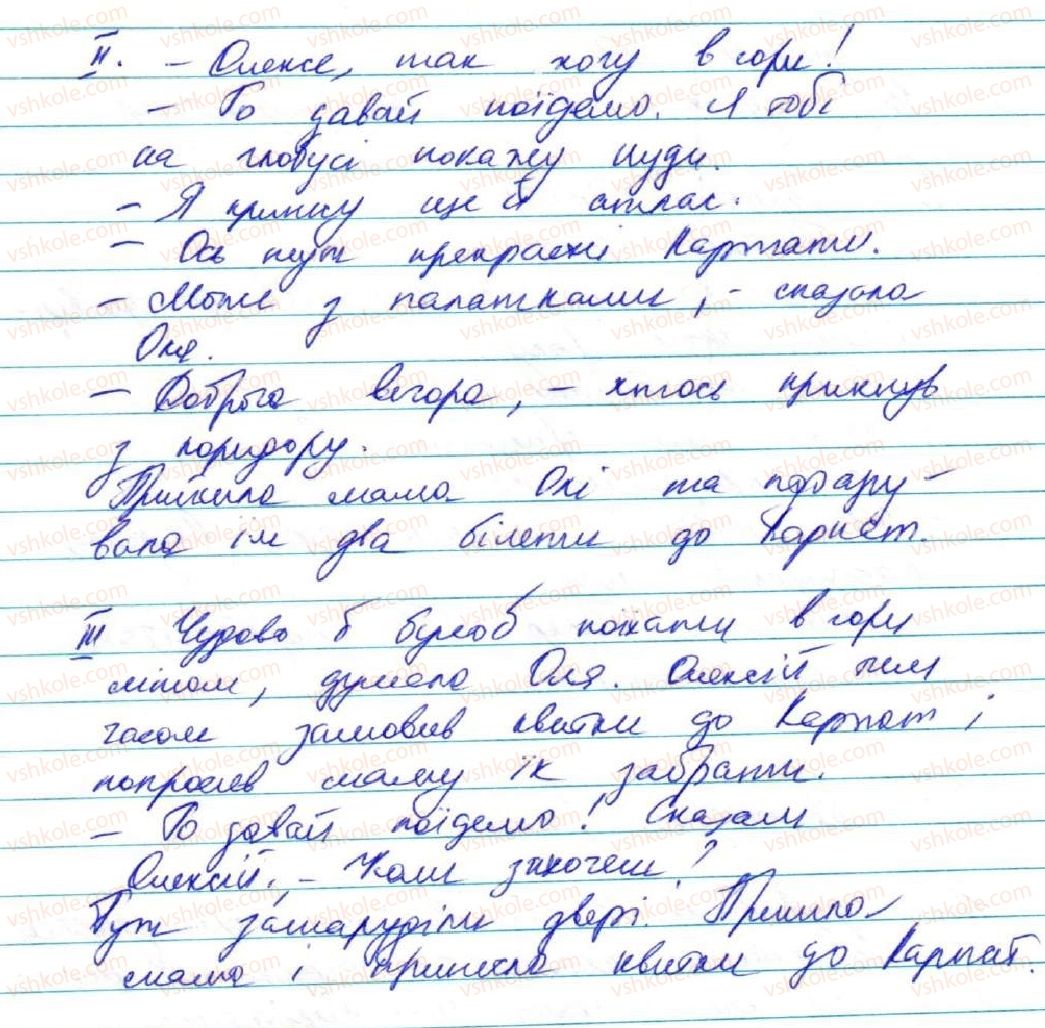 II. – Олексе, так хочу в гори!
– То давай поїдемо. Я тобі
на глобусі покажу куди.
– Я принесу ще й атлас.
– Ось тут прекрасні Карпати.
– Може з палатками, – сказала
Оля.
– Доброго вечора, – хтось крикнув
з коридору.
Прийшла мама Олі та подару-
вала їм два білети до Карпат.
III Чудово б було б поїхати в гори
літом, думала Оля. Олексій тим
часом замовив квитки до Карпат і
попросив маму їх забрати.
– То давай поїдемо! Сказав
Олексій, – Коли захочеш?
Тут зашаруділи двері. Прийшла
мама і принесла квитки до Карпат.